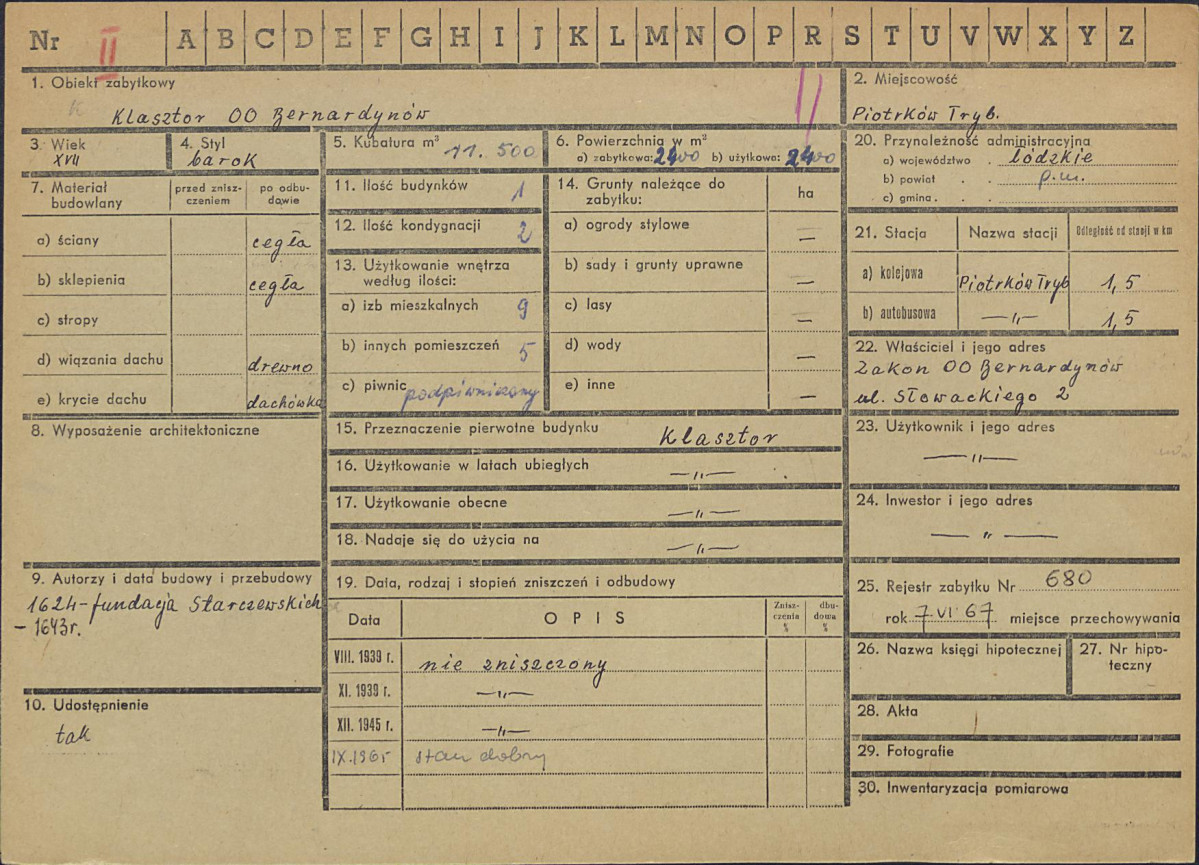 Nr II A B C D E F G H I J K L M N O P R S T U V W X Y Z
1. Obiekt zabytkowy
Klasztor OO Bernardynów
2. Miejscowość
Piotrków Tryb.
3. Wiek
XVII
4. Styl
barok
5. Kubatura m³ 11.500
6. Powierzchnia w m²
a) zabytkowa: 2400 b) użytkowa: 2400
20. Przynależność administracyjna
a) województwo . łódzkie
b) powiat . . p.m.
c) gmina . .
7. Materiał budowlany
przed znisz-
czeniem
po odbu-
dowie
a) ściany cegła
b) sklepienia cegła
c) stropy
d) wiązania dachu drewno
e) krycie dachu dachówka
8. Wyposażenie architektoniczne
9. Autorzy i data budowy i przebudowy
1624-fundacja Starczewskich
- 1643r.
10. Udostępnienie
tak
11. Ilość budynków 1
12. Ilość kondygnacji 2
13. Użytkowanie wnętrza
według ilości:
a) izb mieszkalnych 9
b) innych pomieszczeń 5
c) piwnic podpiwniczony
14. Grunty należące do
zabytku:
ha
a) ogrody stylowe —
b) sady i grunty uprawne —
c) lasy —
d) wody —
e) inne —
15. Przeznaczenie pierwotne budynku Klasztor
16. Użytkowanie w latach ubiegłych —"—
17. Użytkowanie obecne —"—
18. Nadaje się do użycia na —"—
19. Data, rodzaj i stopień zniszczeń i odbudowy
Data
OPIS
Znisz-
czenia
%
dbu-
dowa
%
VIII. 1939 r. nie zniszczony
XI. 1939 r. —"—
XII. 1945 r. —"—
IX.1965 stan dobry
21. Stacja Nazwa stacji Odległość od stacji w km
a) kolejowa Piotrków Tryb 1,5
b) autobusowa —"— 1,5
22. Właściciel i jego adres
Zakon OO Bernardynów
ul. Słowackiego 2
23. Użytkownik i jego adres
—"—
24. Inwestor i jego adres
—"—
25. Rejestr zabytku Nr 680
rok 7.VI.67 miejsce przechowywania
26. Nazwa księgi hipotecznej
27. Nr hipo-
teczny
28. Akta
29. Fotografie
30. Inwentaryzacja pomiarowa